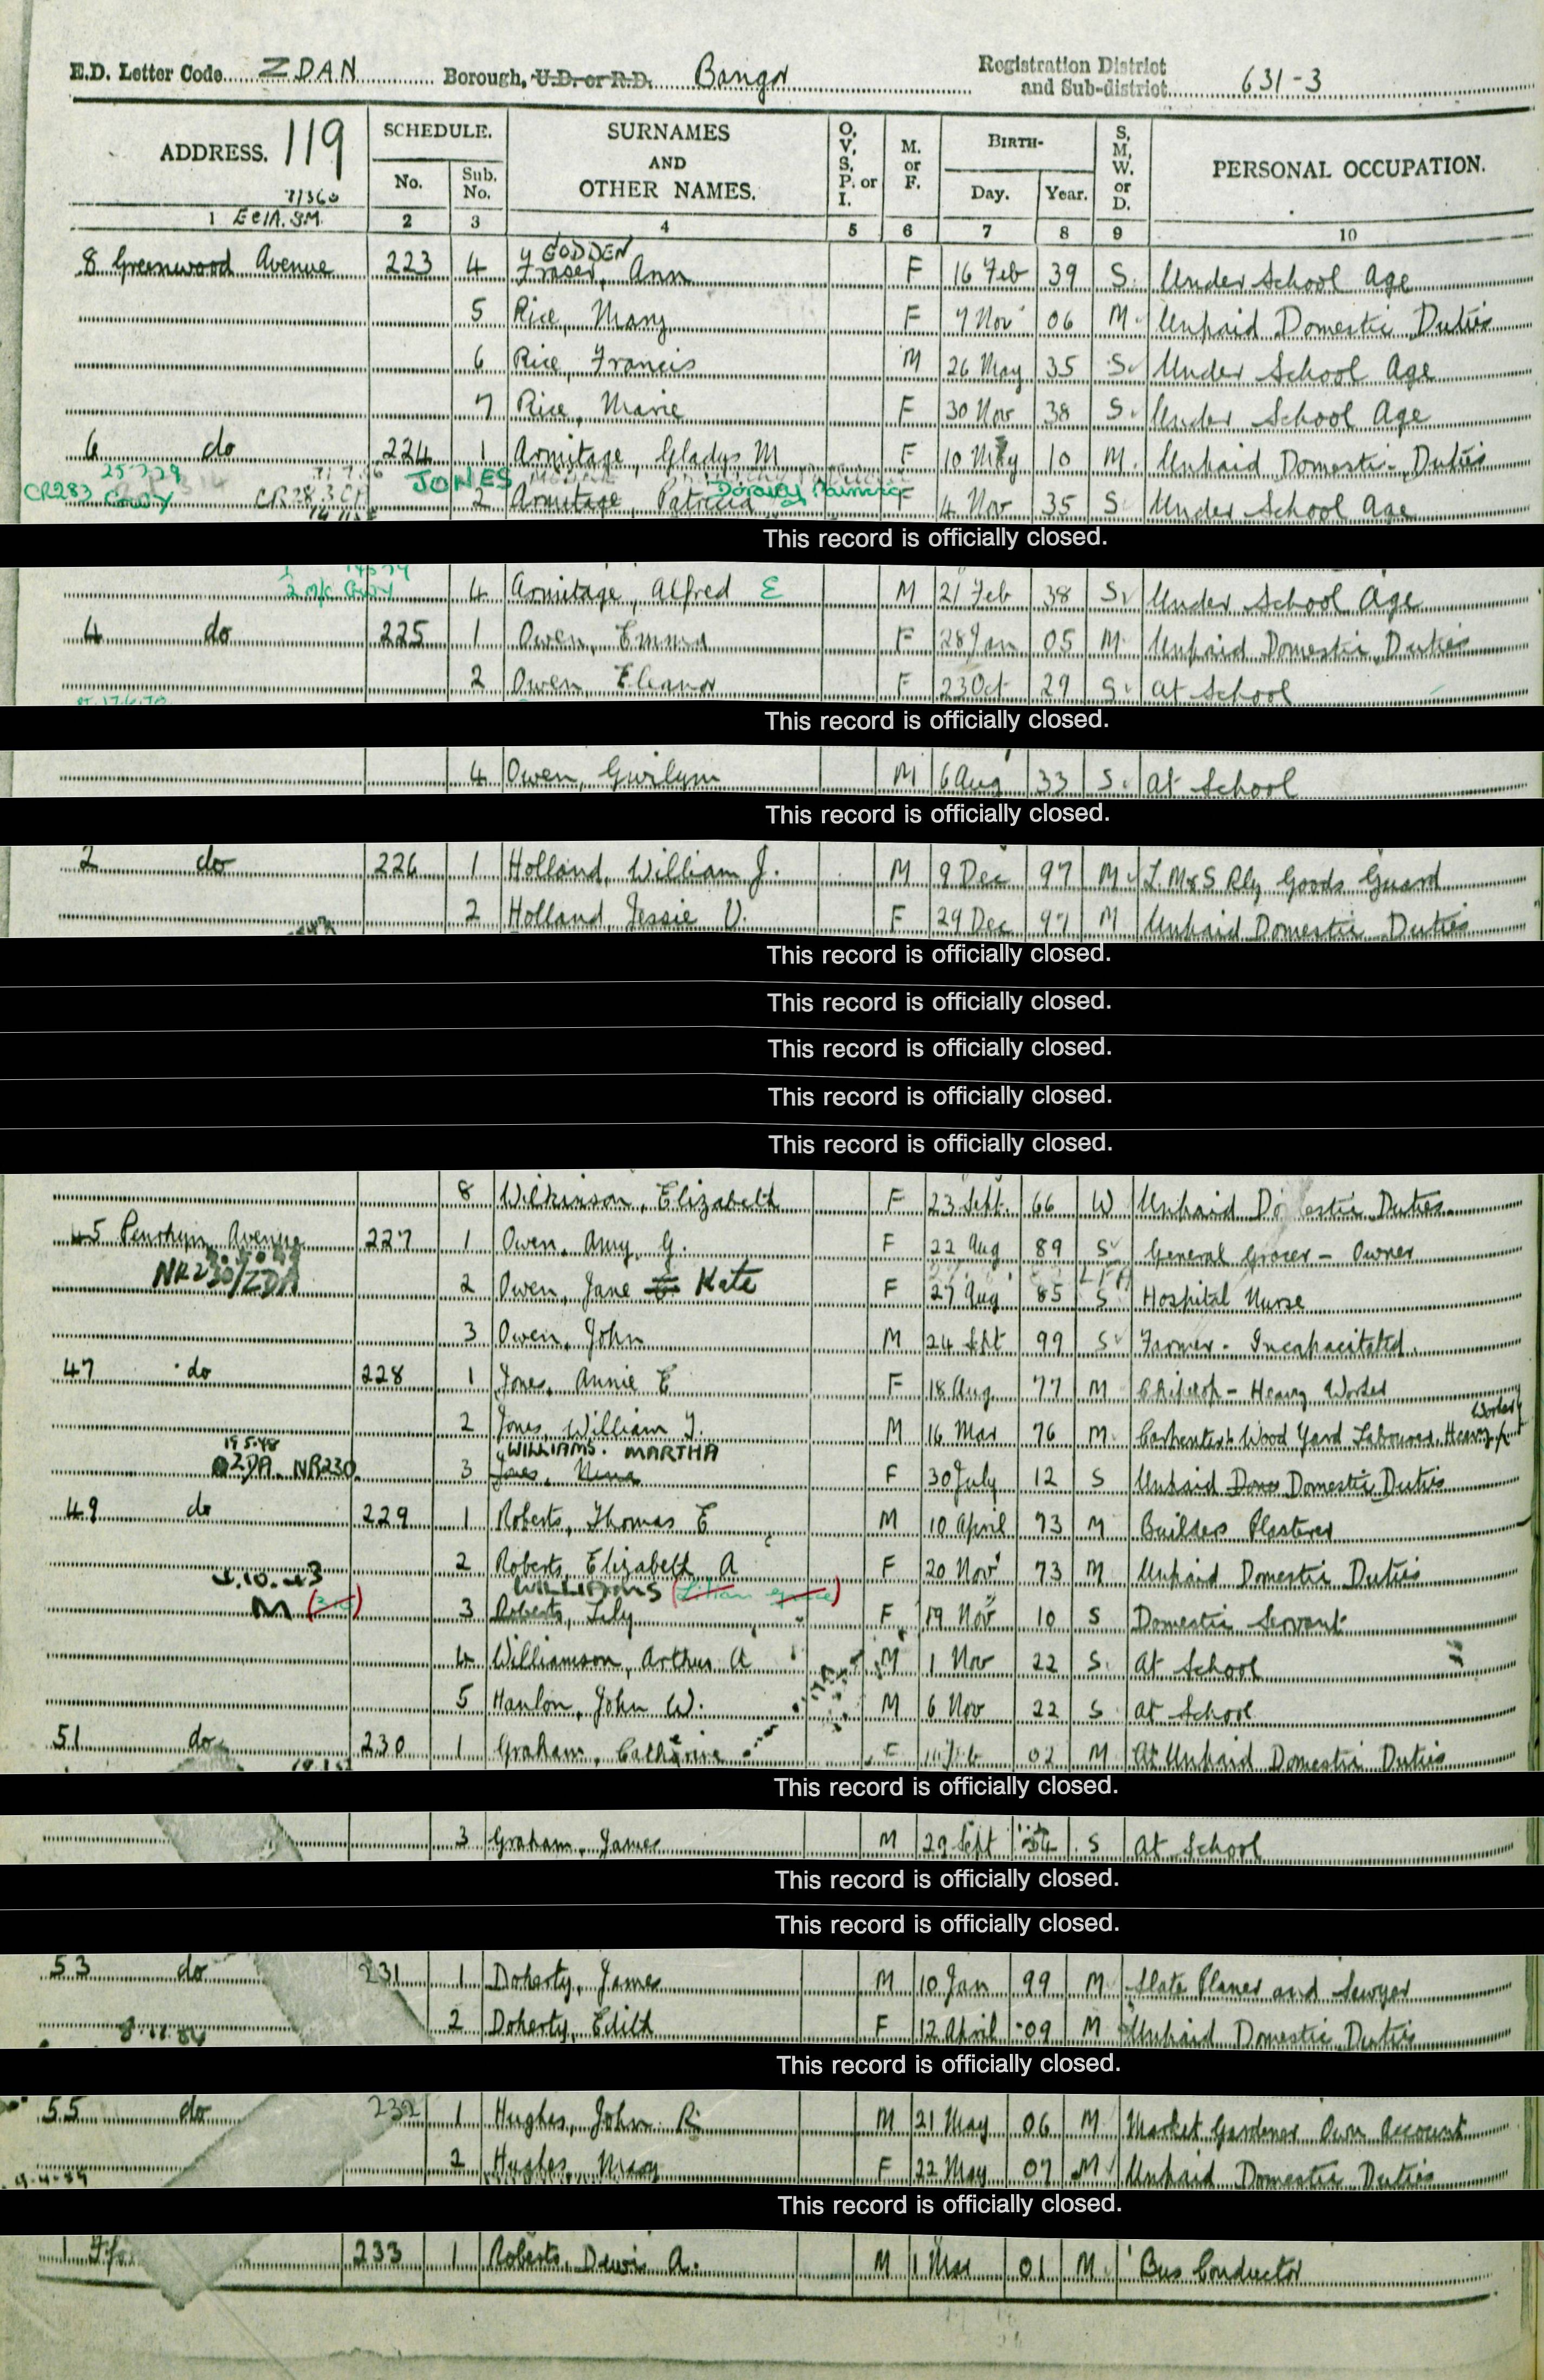 E.D. Letter Code ZDAN Borough, U.D. or R.D. Bangor Registration District and Sub-district 631-3
ADDRESS. 119 SCHEDULE. SURNAMES AND OTHER NAMES. O, V, S, P. or I. M. or F. BIRTH- S, M, W. or D. PERSONAL OCCUPATION.
No. Sub. No. Day. Year.
1 2 3 4 5 6 7 8 9 10
GODDEN
8 Greenwood Avenue 223 4 Fraser, Ann F 16 Feb 39 S. Under School Age
5 Rice, Mary F 7 Nov 06 M. Unpaid Domestic Duties
6 Rice, Francis M 26 May 35 S. Under School Age
7 Rice, Marie F 30 Nov 38 S. Under School Age
6 do 224 1 Armitage, Gladys M F 10 May 10 M. Unpaid Domestic Duties
25.7.79 JONES
CR283 2 Armitage, Patricia F 4 Nov 35 S Under School Age
This record is officially closed.
4 Armitage, Alfred E M 21 Feb 38 S. Under School Age
4 do 225 1 Owen, Emma F 28 Jan 05 M. Unpaid Domestic Duties
2 Owen, Eleanor F 23 Oct 29 S. at School
This record is officially closed.
4 Owen, Gwilym M 6 Aug 33 S. at School
This record is officially closed.
2 do 226 1 Holland, William J. M 9 Dec 97 M. L.M&S Rly Goods Guard
2 Holland, Jessie V. F 29 Dec 97 M Unpaid Domestic Duties
This record is officially closed.
This record is officially closed.
This record is officially closed.
This record is officially closed.
This record is officially closed.
8 Wilkinson, Elizabeth F 23 Sept. 66 W Unpaid Domestic Duties
45 Penrhyn Avenue 227 1 Owen, Amy G. F 22 Aug 89 S General Grocer - Owner
NR230/ZDA 2 Owen, Jane Kate F 27 Aug 85 S Hospital Nurse
3 Owen, John M 24 Sept 99 S Farmer - Incapacitated.
47 do 228 1 Jones, Annie E F 18 Aug. 77 M - Heavy Worker
2 Jones, William J. M 16 Mar 76 M. Carpenter's Wood Yard Labourer, Heavy Worker
19.5.48 WILLIAMS. MARTHA
ZDA NR230 3 Jones, Nina F 30 July 12 S Unpaid Domestic Duties
49 do 229 1 Roberts, Thomas E M 10 April 73 M Builders Plasterer
2 Roberts, Elizabeth A F 20 Nov 73 M Unpaid Domestic Duties
WILLIAMS (Lilian Grace)
M 3 Roberts, Lily F 19 Nov 10 S Domestic Servant
4 Williamson, Arthur A M 1 Nov 22 S. at School
5 Hanlon, John W. M 6 Nov 22 S at School
51 do 230 1 Graham, Catherine F 11 Feb 02 M Unpaid Domestic Duties
This record is officially closed.
3 Graham, James M 29 Sept S at School
This record is officially closed.
This record is officially closed.
53 do 231 1 Doherty, James M 10 Jan 99 M Slate Planer and Sawyer
2 Doherty, Edith F 12 April 09 M Unpaid Domestic Duties
This record is officially closed.
55 do 232 1 Hughes, John R. M 21 May 06 M Market Gardener Own Account
2 Hughes, Mary F 22 May 07 M Unpaid Domestic Duties
This record is officially closed.
1 233 1 Roberts, Dewi A. M 1 Mar 01 M. Bus Conductor